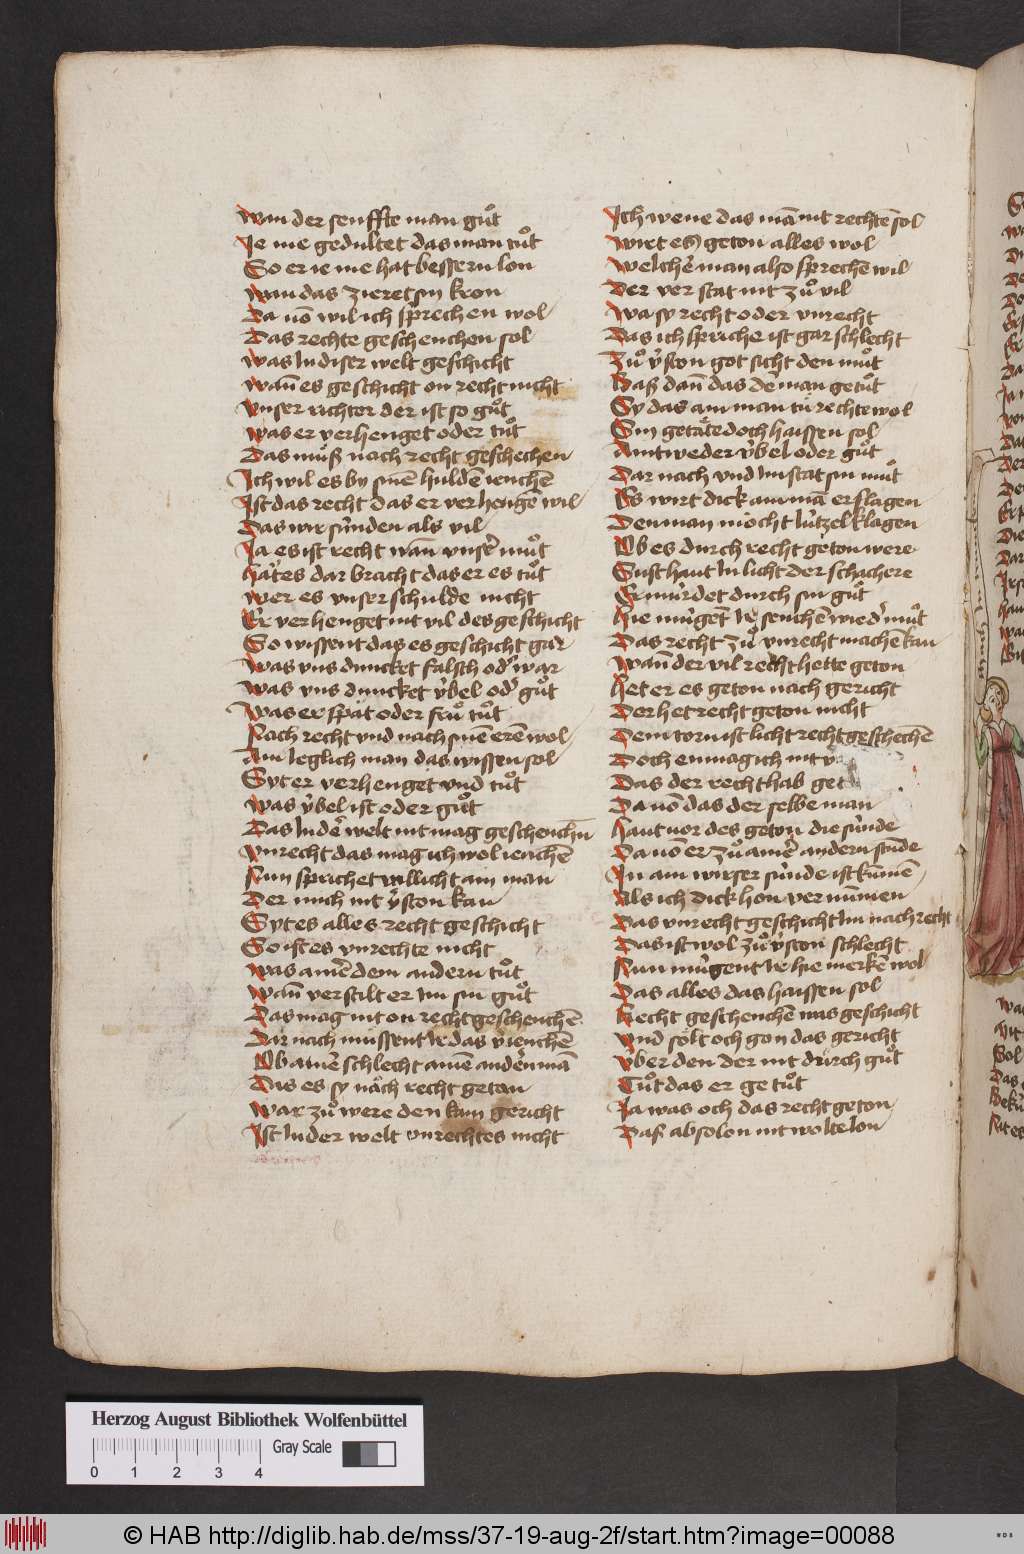 Wan der senffte man guͦt
Je me gedultet das man tuͦt
So er ie me hat bessern lon
Wan das zieret sin kron
Da uō wil ich sprechen wol
Das rechte geschenchen sol
Was In diser welt geschicht
Wan̄ es geschicht on recht nicht
Vnser richter der ist so guͦt
Was er verhenget oder tuͦt
Das muͤß nach recht geschechen
Ich wil es by sinē huldē iechen
Ist das recht das er verhengē wil
Das wir sünden als vil
Ja es ist recht wan̄ vnser muͦt
Hat es dar bracht das er es tuͦt
Wer es vnser schulde nicht
Er verhenget nit vil des geschicht
So wissent das es geschicht gar
Was vns duncket falsch od war
Was vns duncket v̈bel od guͦt
Was er spät oder fruͦ tuͦt
Nach recht vnd nach sinē erē wol
Am Jeglich man das wissen sol
Syt er verhenget vnd tuͦt
Was v̈bel ist oder guͦt
Das In der welt nit mag geschenchn̄
Vnrecht das mag ich wol iechē
Nun sprichet villicht ain man
Der mich nit v̈ston kan
Syt es alles recht geschicht
So ist es vnrechte nicht
Was ainē dem andern tuͦt
Wan̄ verstilt er Im sin guͦt
Das mag nit on recht geschenchē
Dar nach muͤssent Ir das v̈iechē
Ob ainer schlecht ainē andern mā
Das es sy nach recht geton
War zuͦ were den kain gericht
Ist In der welt vnrechtes nicht
Ich wene das mā nit rechtē sol
Wirt es geton alles wol
Welcher man also sprechē wil
Der ver stat nit zuͦ vil
Wa sy recht oder vnrecht
Das ich spriche ist gar schlecht
Zuͦ v̈ston got sicht den muͦt
Baß dan̄ das der man getuͦt
Sy das ain man tü rechte wol
Sin getäte doch haissen sol
Aintweder v̈bel oder guͦt
Dar nach vnd Im stat sin muͦt
Es wirt dick ain mā erslagen
Den man möcht lützel klagen
Ob es durch recht geton were
Sust haut In licht der schachere
Ermürdet durch sin guͦt
Hie mügent Ir senchē wied muͦt
Das recht zuͦ vnrecht machē kan
Wan̄ der vil recht hette geton
Het er es geton nach gericht
Der het recht geton nicht
Dem torn ist licht recht geschechē
Doch enmag ich nit
Das der recht hab get
Da uō das der selbe man
Haut uor des geton die sünde
Da uō er zuͦ ainer andern stunde
In ain wirser sünde ist kumē
Als ich dick hon vernum̄en
Das vnrecht geschicht Im nach recht
Das ist wol zuͦ v̈ston schlecht
Nun mügent Ir hie merkē wol
Das alles das haissen sol
Recht geschenchē was geschicht
Vnd sölt och gon das gericht
V̈ber den der nit durch guͦt
Tuͦt das er ge tuͦt
Ja was och das recht geton
Das absolon nit wolte lon
Herzog August Bibliothek Wolfenbüttel
Gray Scale
0 1 2 3 4
© HAB http://diglib.hab.de/mss/37-19-aug-2f/start.htm?image=00088